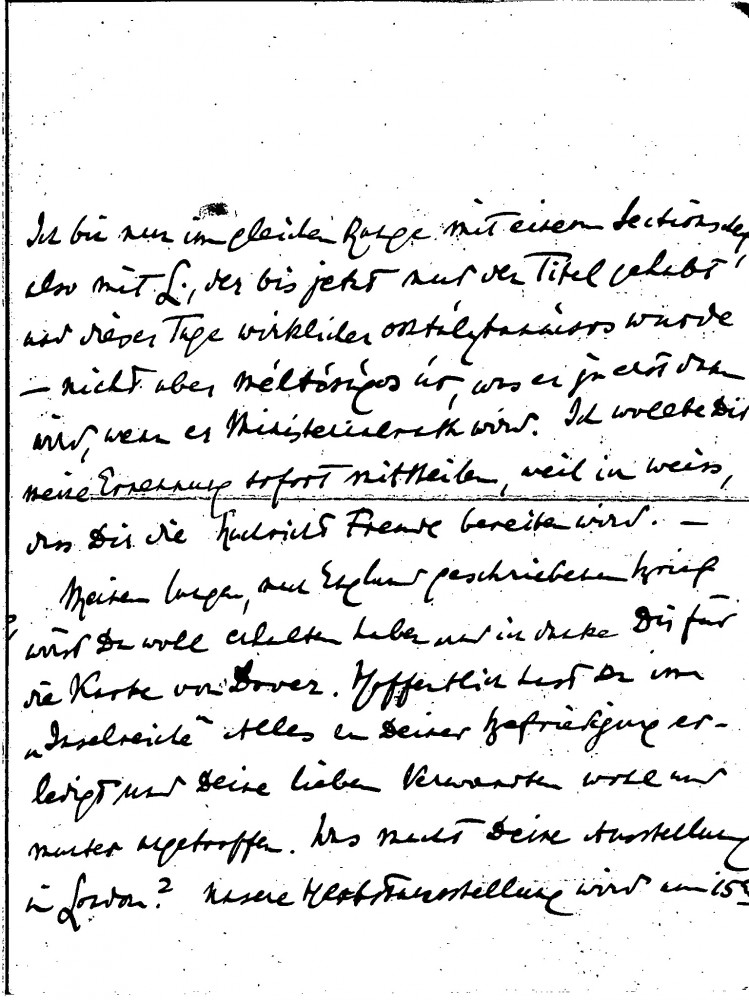 Ich bin nun im gleichen Range mit einem Sectionschef
also mit L., der bis jetzt nur den Titel gehabt
und dieser Tage wirklicher osztálytanácsos wurde
— nicht aber méltóságos úr, was er ja erst dann
wird, wenn er Ministerialrath wird. Ich wollte Dir
meine Ernennung sofort mittheilen, weil ich weiss,
dass Dir die Nachricht Freude bereiten wird. —
Meinen langen, nach England geschriebenen Brief
wirst Du wohl erhalten haben und ich danke Dir für
die Karte von Dover. Hoffentlich hast Du im
„Inselreiche“ Alles zu Deiner Befriedigung er-
ledigt und Deine lieben Verwandten wohl und
munter angetroffen. Was macht Deine Ausstellung
in London? Unsere Herbstausstellung wird am 15